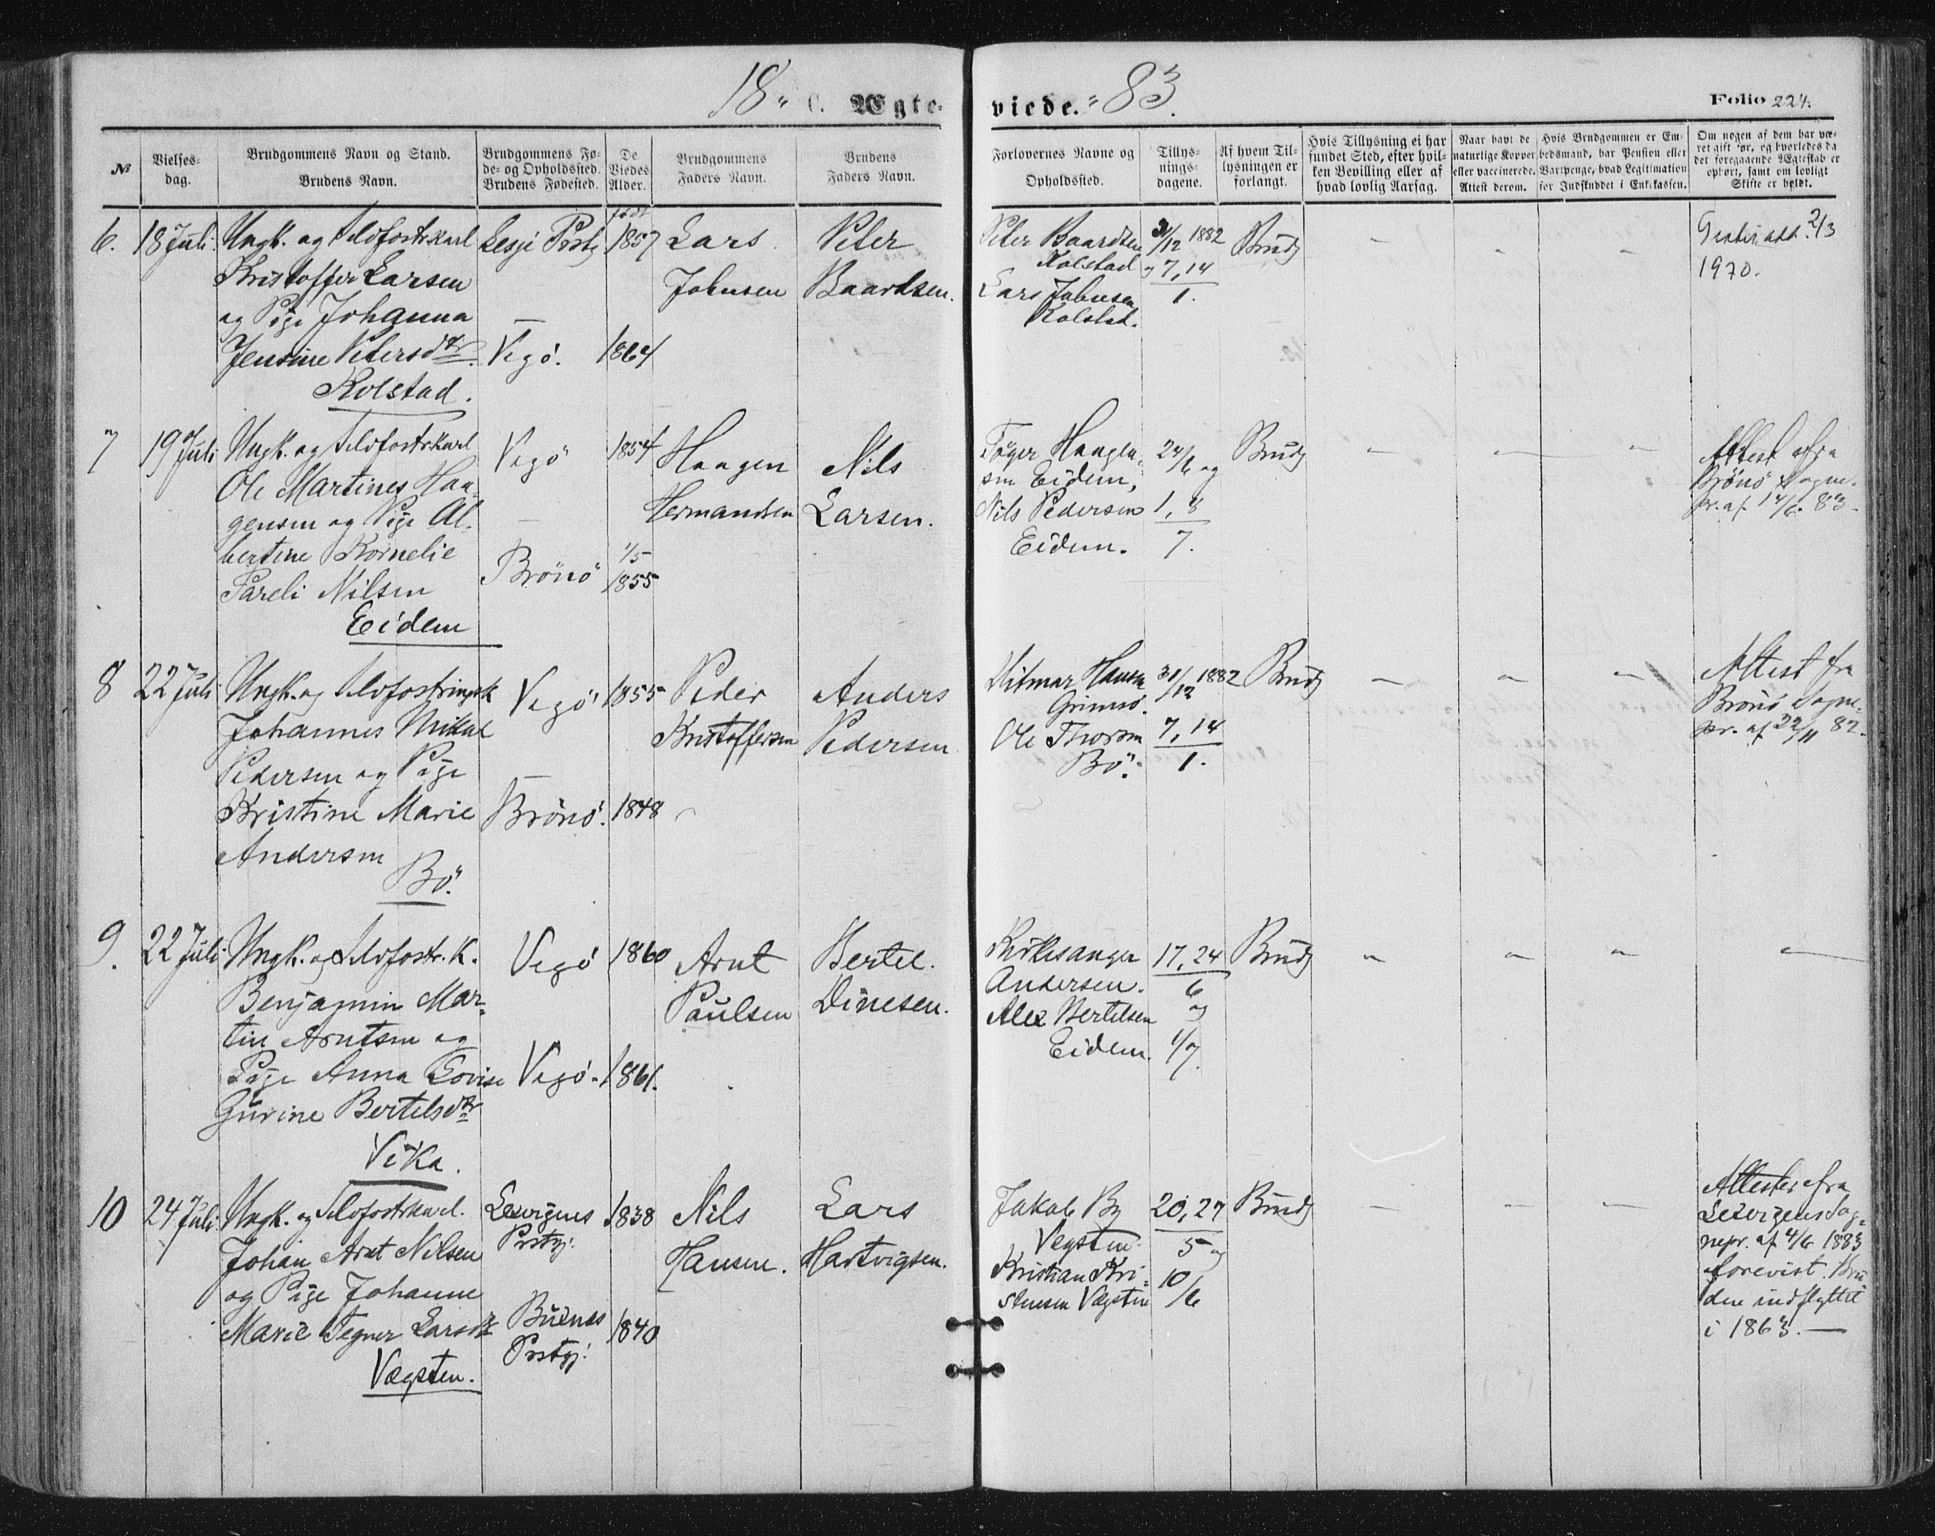 18 " C. Ægte-viede. " 83.
Folio 224.
№
Vielses-dag.
Brudgommens Navn og Stand.
Brudens Navn.
Brudgommens Fø-
de- og Opholdssted.
Brudens Fødested.
De
Viedes
Alder.
Brudgommens
Faders Navn.
Brudens
Faders Navn.
Forlovernes Navne og
Opholdssted.
Tillys-
nings-
dagene.
Af hvem Til-
lysningen er
forlangt.
Hvis Tillysning ei har
fundet Sted, efter hvil-
ken Bevilling eller af
hvad lovlig Aarsag.
Naar havt de
naturlige Kopper
eller vaccinerede.
Attest derom.
Hvis Brudgommen er Em-
bedsmand, har Pension eller
Vartpenge, hvad Legitimation
for Indskuddet i Enkekassen.
Om nogen af dem har væ-
ret gift før, og hvorledes da
det foregaaende Ægteskab er
ophørt, samt om lovligt
Skifte er holdt.
6.
18 Juli
Ungk. og Selvfostrskarl
Kristoffer Larsen
og Pige Johanna
Jensine Petersdtr
Kolstad.
Lesje Prstgj
Vegö.
1857
1864
Lars
Johnsen
Peter
Baardsen.
Peter Baardsen
Kolstad
Lars Johnsen
Kolstad.
31/12 1882
og 7, 14
1.
Brudg
2/3
1970.
7
19 Juli
Ungk. og Selvfostrskarl
Ole Martines Haa-
gensen og Pige Al-
bertine Kornelie
Pareli Nilsen
Eidem
Vegö
Brönö
1854
1/5
1855
Haagen
Hermandsen
Nils
Larsen.
Eidem,
Nils Pedersen
Eidem.
24/6 og
1, 8
7.
Brudg
Attest fra
Brönö Sogne-
pr. af 14/6. 83.
8
22 Juli
Ungk. og
Johannes Mikal
Pedersen og Pige
Kristine Marie
Andersen
Bö.
Vegö
Brönö.
1855
1848
Peder
Kristoffersen
Anders
Pedersen
Hitmar Hansen
Grimsö.
Ole Thorsen
Bö.
31/12 1882
7, 14
1.
Brudg
Attest fra
Brönö Sogne-
pr. af 22/11 82.
9.
22 Juli
Ungk. og Selvfostr. K.
Benjamin Mar-
tin Arntsen og
Pige Anna Lovise
Gurine Bertelsdtr
Vika.
Vegö
Vegö.
1860
1861.
Arnt
Paulsen
Bertel.
Dinesen.
Kirkesanger
Andersen.
Alex Bertelsen
Eidem.
17, 24
6
og
1/7.
Brudg
10
24 Juli
Ungk. og Selvfostrskarl.
Johan Arnt Nilsen
og Pige Johanne
Marie Tegner Larsdtr
Vægsten.
Prstgj.
Buknes
Prstgj:
1838
1840
Nils
Hansen.
Lars
Hartvigsen.
Jakob By
Vegsten.
Kristian Kri-
stensen Vægsten
20, 27
5 og
10
/6
Brudg
Attester fra
Sog-
nepr. af 4/6 1883
forevist. Bru-
den indflyttet
i 1863. —